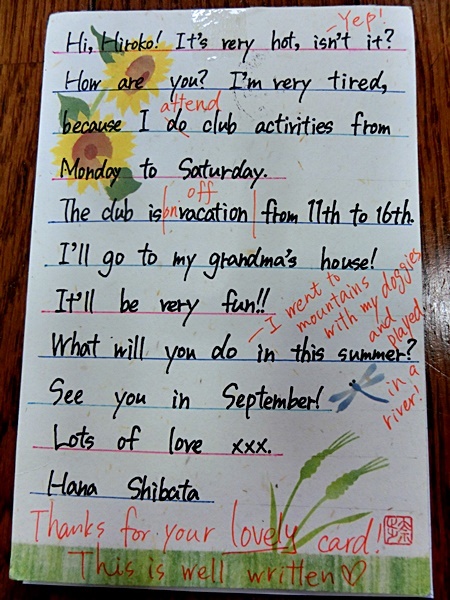 Yep!
Hi, Hiroko! It's very hot, isn't it?
How are you? I'm very tired,
attend
because I do club activities from
Monday to Saturday.
off
The club is on vacation from 11th to 16th.
I'll go to my grandma's house!
It'll be very fun!!
I went to
mountains
with my doggies
and
played
in a
river!
What will you do in this summer?
See you in September!
Lots of love xxx.
Hana Shibata
Thanks for your lovely card!
This is well written♡